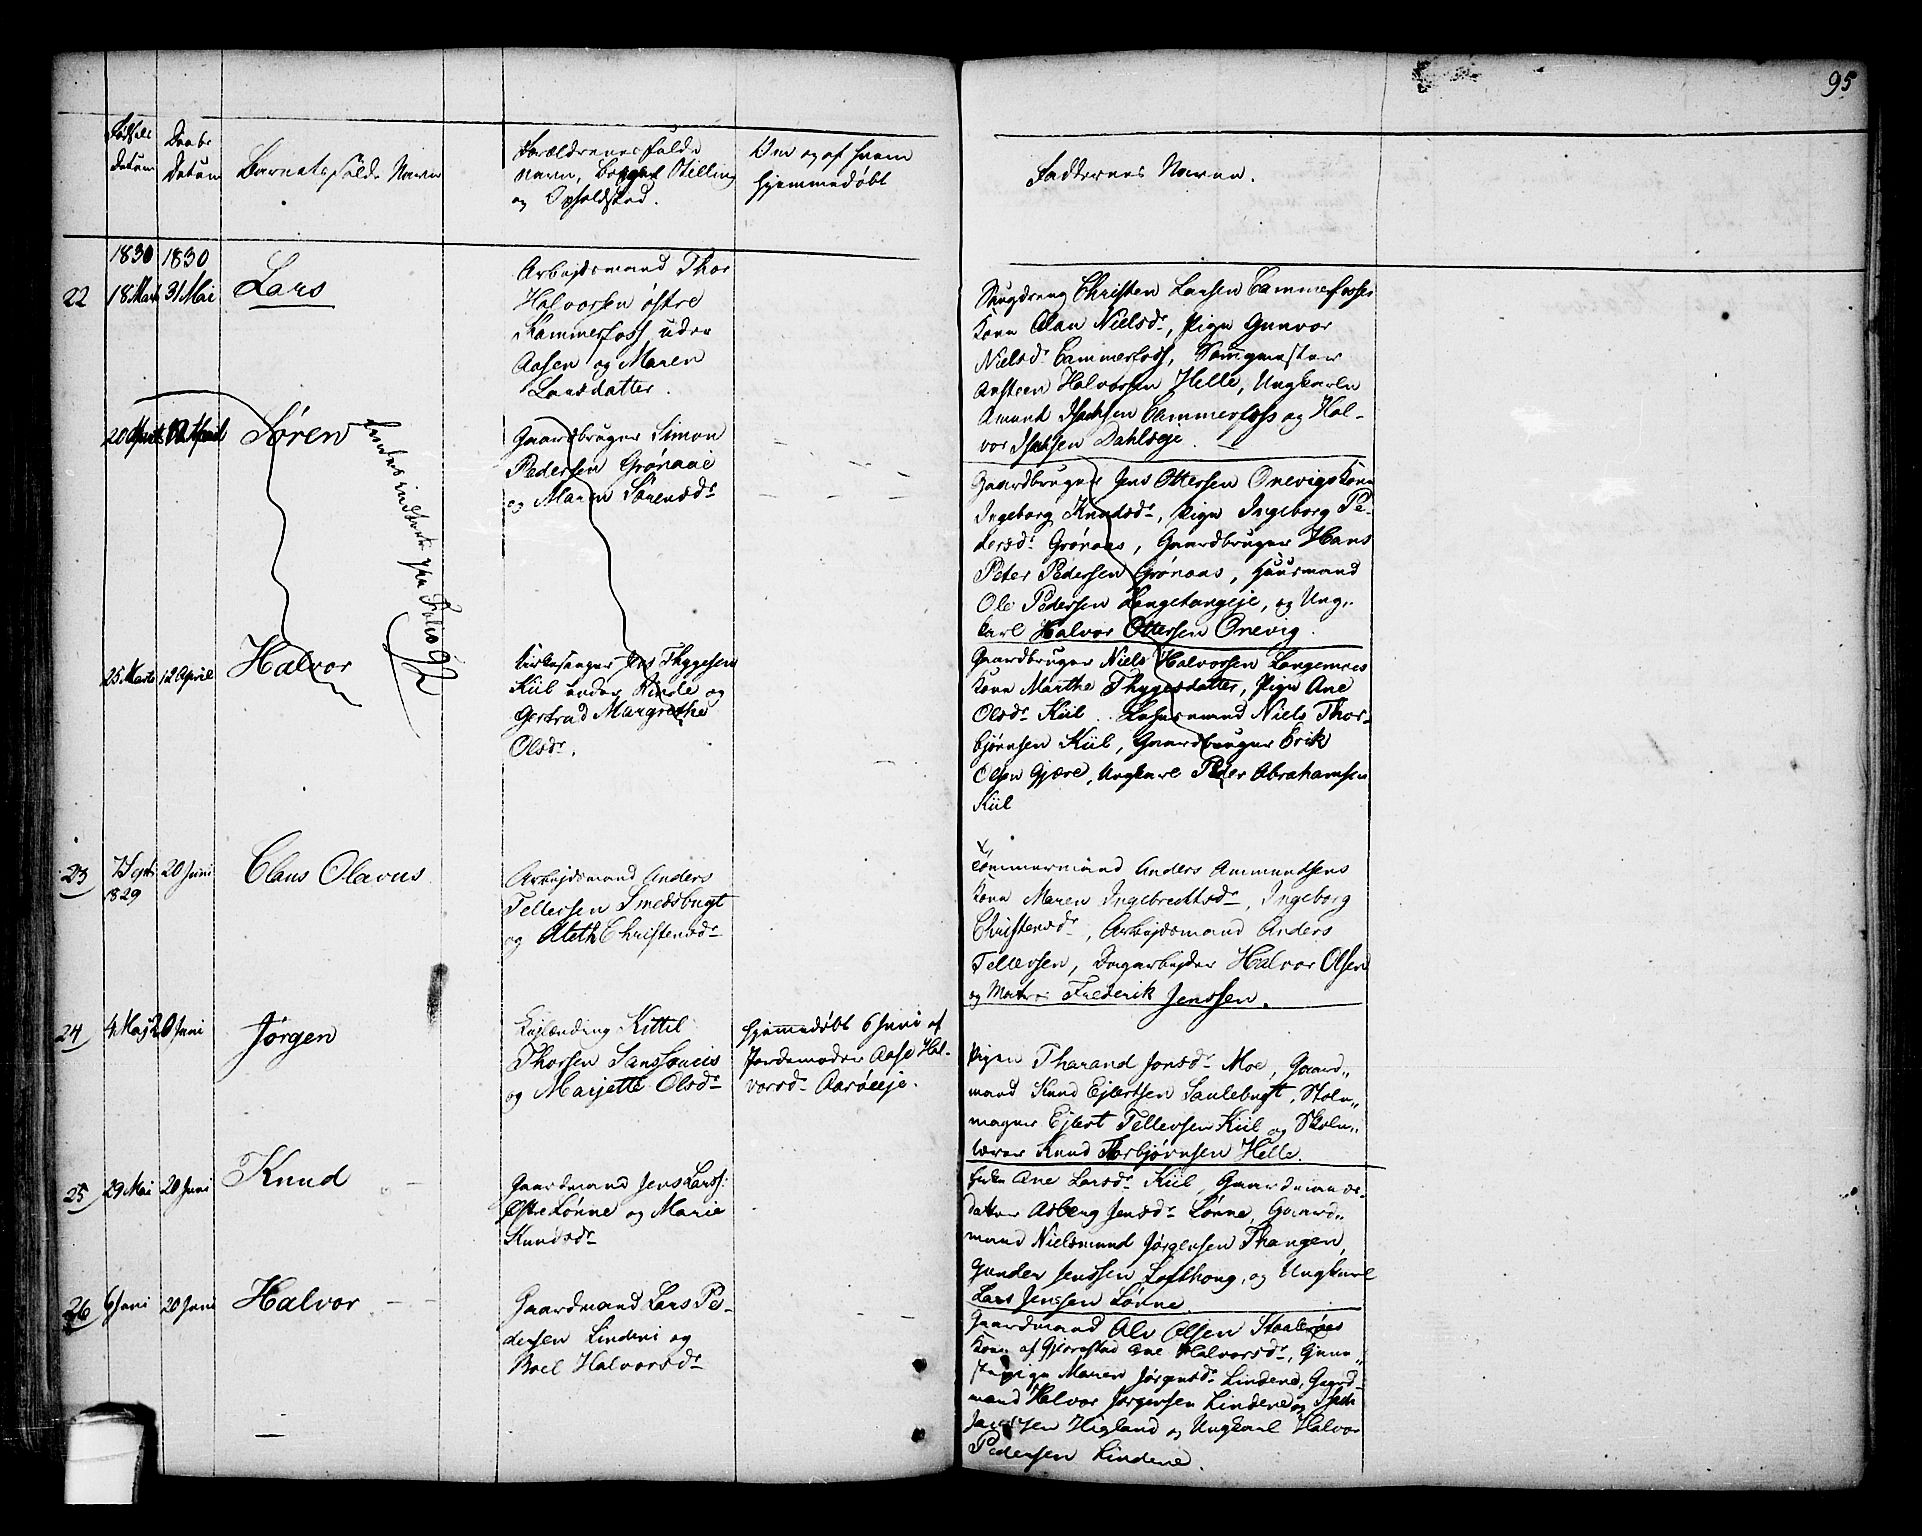 95
Fødsels
Datum
Daabs
Datum
Barnets fulde Navn
Forældrenes fulde
Navn, Stilling
og Opholdsted.
Om og af hvem
hjemmedøbt
Faddernes Navne.
1830 1830
22 18 Marts 31 Mai Lars
Arbejdsmand Thor
Halvorsen østre
Kammerfoss under
Aasen og Maren
Larsdatter.
Christen Larsen Cammerfosse
Kone Nielsdr, Pige Gunvor
Nielsdr Cammerfoss,
Halvorsen Helle, Ungkarle
Amund Isachsen Cammerfoss og Hal-
vor Isachsen Dahlseje.
12 April Søren
Findes indført paa Folio 92
Gaardbruger Simon
Pedersen Grønaae
og Maren Sørensdr
Gaardbruger Jens Ottersen Onevigs Kone
Ingeborg Knudsdr, Pige Ingeborg Pe-
dersdr Grønaas, Gaardbruger Hans
Peter Pedersen Grønaas, Huusmand
Ole Pedersen Langetangeje, og Ung-
karl Halvor Ottersen Onevig.
25 Marts 12 April Halvor
Kirkesanger Jens Thygesen
Kiil under Rinde og
Gertrud Margrethe
Olsdr.
Gaardbruger Niels Halvorsen Langemnes
Kone Marthe Thygesdatter, Pige Ane
Olsdr Kiil. Niels Thor-
bjørnsen Kiil, Gaardbruger Erik
Olsen Gjære, Ungkarl Peder Abrahamsen
Kiil
23 7 Sept 20 Juni Claus Olavus
1829
Arbejdsmand Anders
Tellefsen Smedsbugt
og Aleth Christensdr
Tømmermand Anders Ammundsens
Kone Maren Ingebrechtsdr, Ingeborg
Christensdr, Arbejdsmand Anders
Tellevsen, Dagarbejder Halvor Olsen
og Frederik Jenssen.
24 4 Maj 20 Juni Jørgen
Kittil
Thorsen Sanssoucis
og Marjette Olsdr
hjemmedøbt 6 Juni af
Jordemoder Aase Hal-
vorsdr Aarøeeje.
Pigen Tharand Jonsdr Moe, Gaard-
mand Knud Ejlertsen Saulebugt, Stoln-
mager Ejlert Tellevsen Kiil og Skole-
lærer Knud Thorbjørnsen Helle.
25 29 Mai 20 Juni Knud
Gaardmand Jens Larss:
Østre Lønne og Marie
Knudsdr
Enke Ane Larsdr Kiil, Gaardmands-
datter Asberg Jensdr Lønne, Gaard-
mand Nielsmund Jørgensen Thangen,
Gunder Jenssen Lofthoug, og Ungkarl
Lars Jenssen Lønne.
26 6 Juni 20 Juni Halvor
Gaardmand Lars Pe-
dersen Lindeni og
Boel Halvorsdr
Gaardmand Alv Olsen Staalenæs
Kone af Gjerrestad Ane Halvorsdr,
Maren Jørgensdr Lindene, Gaard-
mand Halvor Jørgensen Lindene og
Higland og Ungkarl Halvor
Pedersen Lindene.